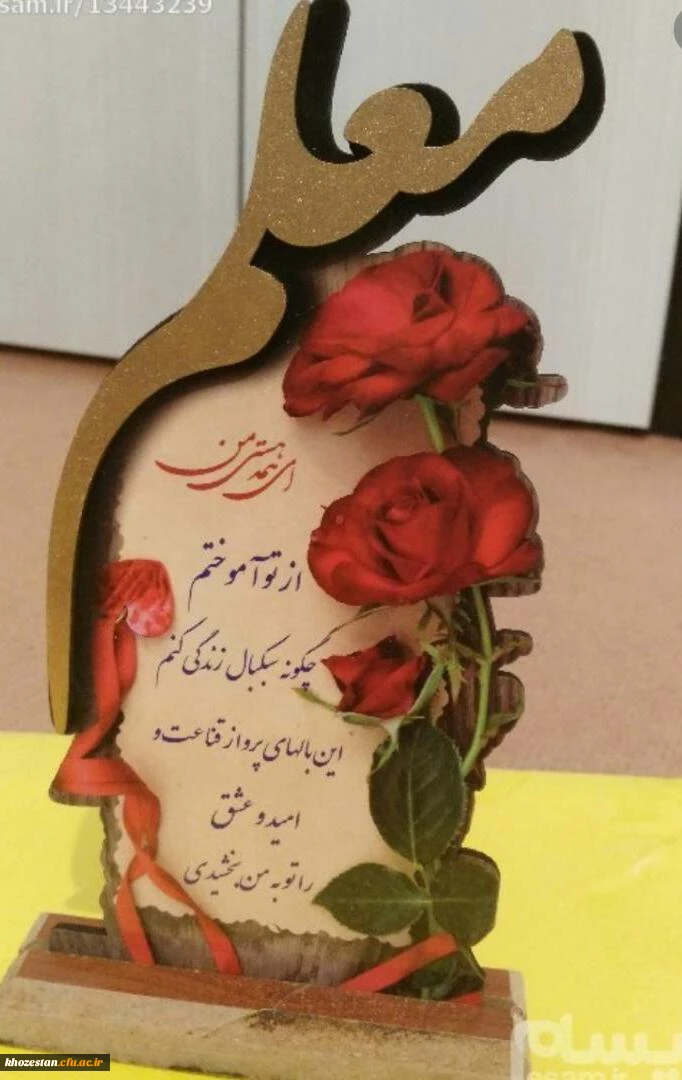 sam.ir/13443239
معلم
ای همه هستی من
از تو آموختم
چگونه سبکبال زندگی کنم
این بالهای پرواز قناعت و
امید و عشق
را تو به من بخشیدی
khozestan.cfu.ac.ir
بسام
esam.ir